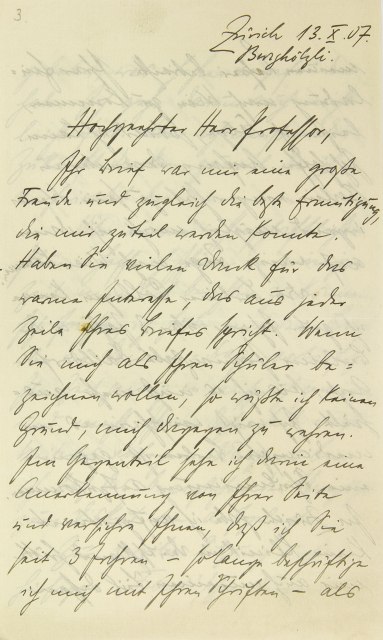 3
Zürich 13.X.07.
Burghölzli.
Hochgeehrter Herr Professor,
Ihr Brief war mir eine große
Freude und zugleich die beste Ermutigung,
die mir zuteil werden konnte.
Haben Sie vielen Dank für das
warme Interesse, das aus jeder
Zeile Ihres Briefes spricht. Wenn
Sie mich als Ihren Schüler be=
zeichnen wollen, so wüßte ich keinen
Grund, mich dagegen zu wehren.
Im Gegenteil sehe ich darin eine
Anerkennung von Ihrer Seite
und versichre Ihnen, daß ich Sie
seit 3 Jahren – solange beschäftige
ich mich mit Ihren Schriften – als